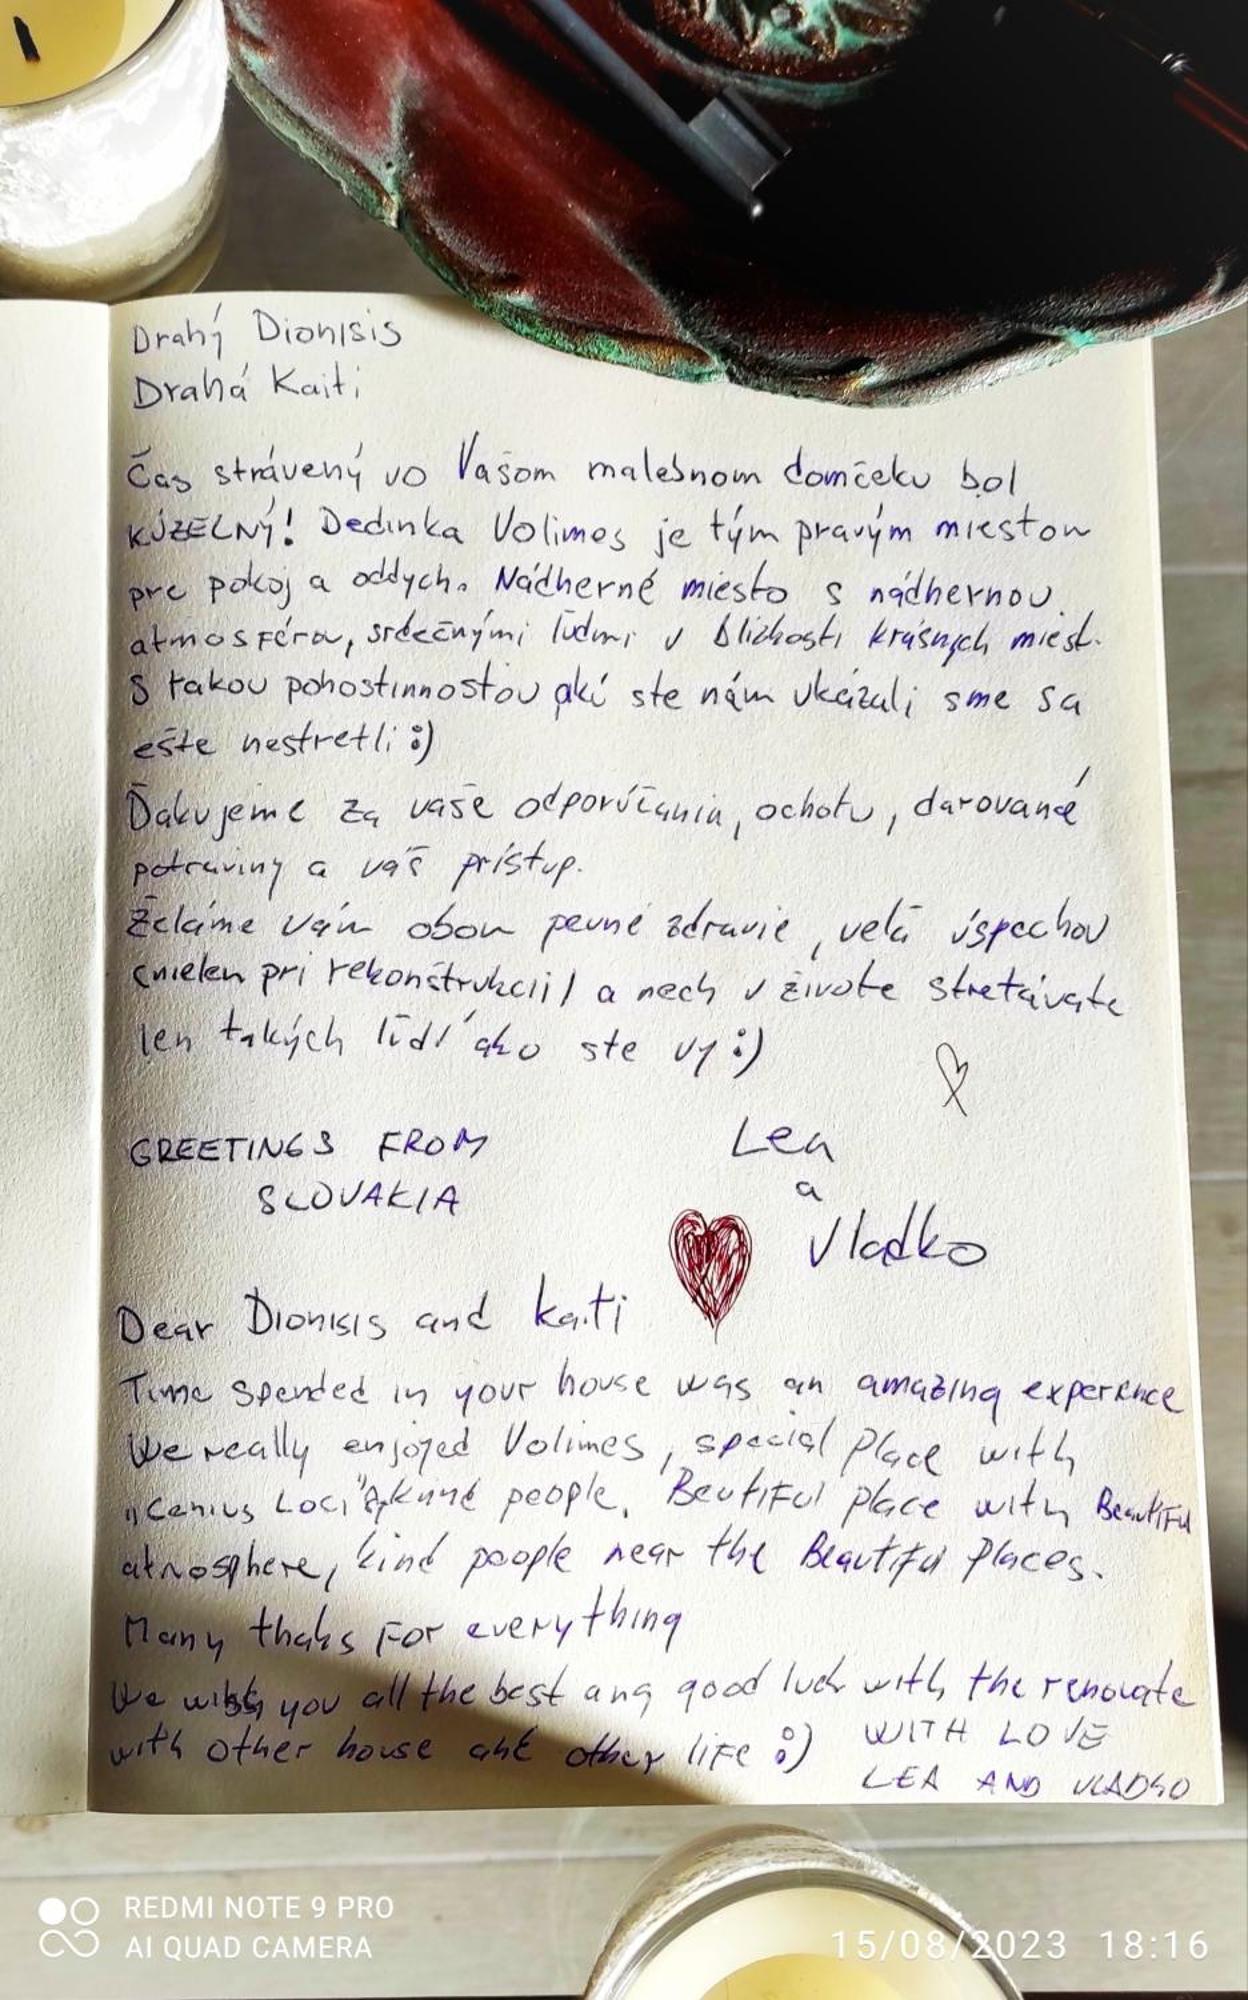 Drahý Dionisis
Drahá Kaiti
Čas strávený vo Vašom malebnom domčeku bol
KÚZELNÝ! Dedinka Volimes je tým pravým miestom
pre pokoj a oddych. Nádherné miesto s nádhernou
atmosférou, srdečnými ľuďmi v blízkosti krásnych miest.
S takou pohostinnosťou akú ste nám ukázali sme sa
ešte nestretli :)
Ďakujeme za vaše odporúčania, ochotu, darované
potraviny a váš prístup.
Želáme vám obom pevné zdravie, veľa úspechov
(nielen pri rekonštrukcii) a nech v živote stretávate
len takých ľudí ako ste vy :)
GREETINGS FROM
SLOVAKIA
Lea
a
Vladko
Dear Dionisis and Kaiti
Time spended in your house was an amazing experience
We really enjoyed Volimes, special place with
„Genius Loci" kind people. Beutiful place with Beautiful
atmosphere, kind people near the Beautiful places.
Many thaks for everything
We wish you all the best ang good luck with the renovate
with other house and other life :)
WITH LOVE
LEA AND VLADKO
REDMI NOTE 9 PRO
AI QUAD CAMERA
15/08/2023 18:16